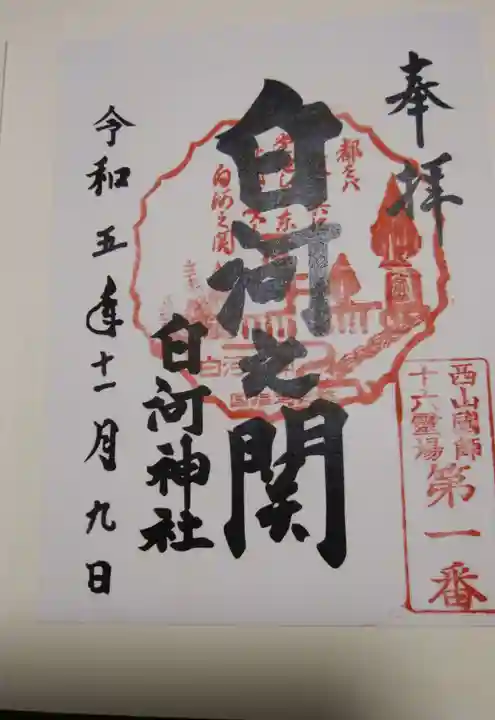 奉拝
白河之関
白河神社
令和五年十一月九日
西山國師
十六霊場
第一番
都をバ
白河之関